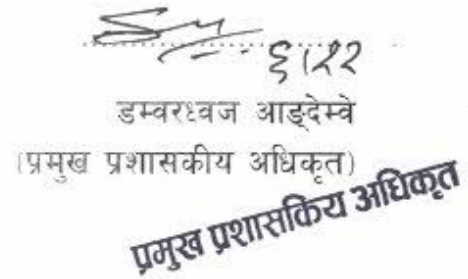 ६।२२
डम्वरध्वज आङ्देम्वे
(प्रमुख प्रशासकीय अधिकृत)
प्रमुख प्रशासकिय अधिकृत